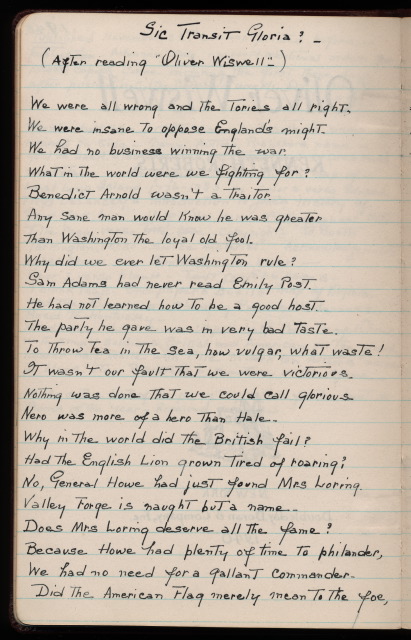 Sic Transit Gloria? -
(After reading "Oliver Wiswell"-)
We were all wrong and the Tories all right.
We were insane to oppose England's might.
We had no business winning the war.
What in the world were we fighting for?
Benedict Arnold wasn't a Traitor.
Any sane man would know he was greater
Than Washington the loyal old fool.
Why did we ever let Washington rule?
Sam Adams had never read Emily Post.
He had not learned how to be a good host.
The party he gave was in very bad Taste.
To throw Tea in the sea, how vulgar, what waste!
It wasn't our fault that we were victorious.
Nothing was done that we could call glorious
Nero was more of a hero than Hale..
Why in the world did the British fail?
Had the English Lion grown tired of roaring?
No, General Howe had just found Mrs Loring.
Valley Forge is naught but a name..
Does Mrs Loring deserve all the fame?
Because Howe had plenty of time to philander,
We had no need for a gallant commander.
Did the American Flag merely mean to the foe,